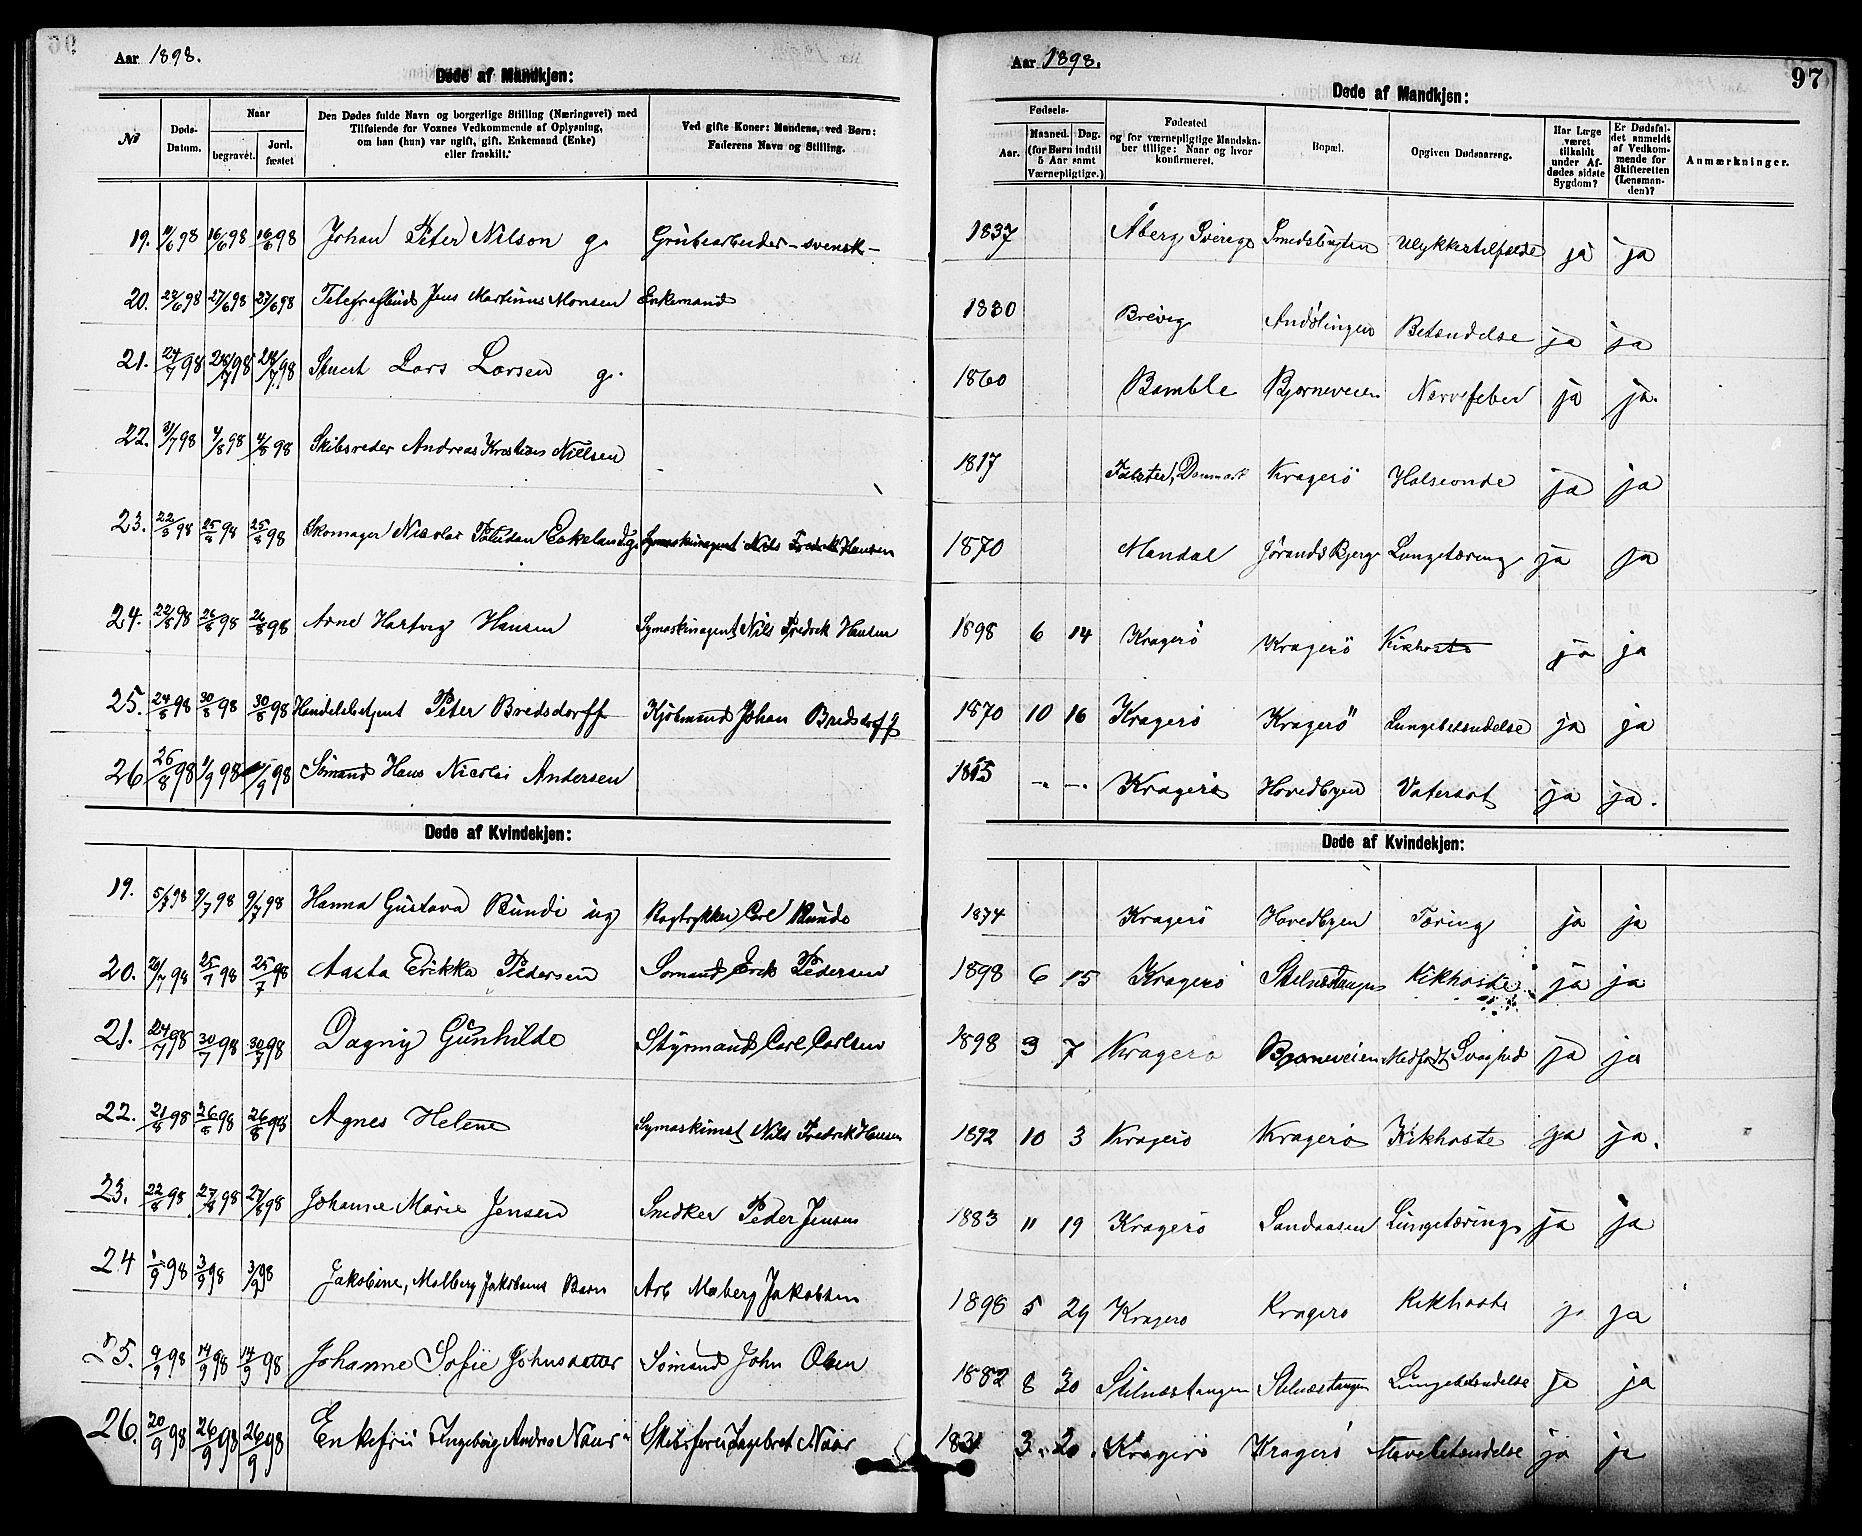 Aar 1898.
Døde af Mandkjøn:
No
Døds-Datum.
Naar
begravet.
Jord-fæstet
Den Dødes fulde Navn og borgerlige Stilling (Næringsvei) med
Tilføiende for Voxnes Vedkommende af Oplysning,
om han (hun) var ugift, gift, Enkemand (Enke)
eller fraskilt.
Ved gifte Koner: Mandens, ved Børn:
Faderens Navn og Stilling.
19. 11/6 98 16/6 98 16/6 98 Johan Peter Nilson g. Grubearbeider - svensk -
20. 98 27/6 98 27/6 98 Telegrafbud Jens Martinus Monsen Enkemand
21. 24/7 98 28/7 98 28/7 98 Stuert Lars Larsen g.
22. 31/7 98 4/8 98 4/8 98 Skibsreder Andreas Kristian Nielsen
23. 22/8 98 25/8 98 25/8 98 Skomager Nicolai Paludan Eskeland g. Symaskinagent Nils Fredrik Hansen
24. 22/8 98 26/8 98 26/8 98 Arne Hartvig Hansen Symaskinagent Nils Fredrik Hansen
25. 24/8 98 30/8 98 30/8 98 Handelsbetjent Peter Bredsdorff Kjöbmand Johan Bredsdorff
26 26/8 98 1/9 98 1/9 98 Sömand Hans Nicolai Andersen
Døde af Kvindekjøn:
19. 5/7 98 9/7 98 9/7 98 Hanna Gustava Bundi ug Bogtrykker Carl Bunde
20. 20/7 98 25/7 98 25/7 98 Aasta Erikka Pedersen Sömand Erik Pedersen
21. 24/7 98 30/7 98 30/7 98 Dagny Gunhilde Styrmand Carl Carlsen
22. 21/8 98 26/8 98 26/8 98 Agnes Helene Symaskinst Nils Fredrik Hansen
23. 22/8 98 27/8 98 27/8 98 Johanne Marie Jensen Snedker Peder Jensen
24 1/9 98 3/9 98 3/9 98 Jakobine, Malberg Jakobsens Barn Arb Maberg Jakobsen
25. 9/9 98 14/9 98 14/9 98 Johanne Sofie Johnsdatter Sömand John Olsen
26. 20/9 98 26/9 98 26/9 98 Enkefru Ingeborg Andrea Naar Skibsförer Ingebret Naar
Aar 1898.
97
Døde af Mandkjøn:
Fødsels-
Aar.
Maaned. Dag.
(for Børn indtil
5 Aar samt
Værnepligtige.)
Fødested
og for værnepligtige Mandska-
ber tillige: Naar og hvor
konfirmeret.
Bopæl.
Opgiven Dødsaarsag.
Har Læge
været
tilkaldt
under Af-
dødes sidste
Sygdom?
Er Dødsfal-
det anmeldt
af Vedkom-
mende for
Skifteretten
(Lensman-
den)?
Anmærkninger.
1837 Åberg, Sverige Smedsbugten Ulykkestilfælde ja ja
1830 Brevig Betændelse ja ja
1860 Bamble Bjørneveien Nervefeber ja ja.
1817 Danmark Kragerö Halsonde ja ja
1870 Mandal Jørands Bjerg Lungetæring ja ja
1898 6 14 Kragerö Kragerö Kikhoste ja ja
1870 10 16 Kragerö Kragerö Lungebetændelse ja ja
18 -. -. Kragerö Hovedbyen Vatersot ja ja.
Døde af Kvindekjøn:
1874 Kragerö Hovedbyen Tæring ja ja
1898 6 15 Kragerö Stilnestangen Kikhoste ja ja
1898 3 7 Kragerö Bjørneveien Medfødt Svaghed ja ja
1892 10 3 Kragerö Kragerö Kikhoste ja ja.
1883 11 19 Kragerö Sandaasen Lungetæring ja ja
1898 5 29 Kragerö Kragerö Kikhoste ja ja
1882 8 30 Stilnæstangen Stilnæstangen Lungebetændelse ja ja
1831 3. 20. Kragerö Kragerö ja ja